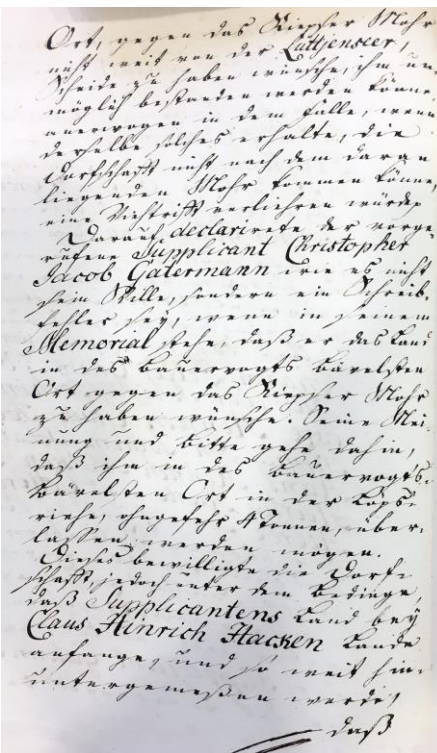 Ort, gegen das Kiepser Mohr
nicht weit von der Lüttjenseer,
Scheide zu haben wünsche, ihm un-
möglich bestanden werden könne,
anerwogen in dem Falle, wenn
derselbe solches erhalte, die
Dorfschafft nicht nach dem daran
liegenden Mohr kommen könne,
eine Viehtrifft verliehren würde,
Darauf declarirete der vorge-
rufene Supplicant Christopher
Jacob Gatermann wie es nicht
sein Wille, sondern ein Schreib-
fehler sey, wenn in seinem
Memorial stehe, daß er das Land
in des Bauervogts bävelsten
Ort gegen das Kiepser Mohr
zu haben wünsche. Seine Mei-
nung und Bitte gehe dahin,
daß ihm in des Bauervogts
bävelsten Ort in der Löps-
riehe, ohngefehr 4 Tonnen, über-
lassen werden mögen.
Dieses bewilligte die Dorf-
schafft, jedoch unter dem Bedinge,
daß Supplicantens Land bey
Claus Hinrich Hacken Lande
anfange, und so weit hin-
untergemeßen werde,
daß